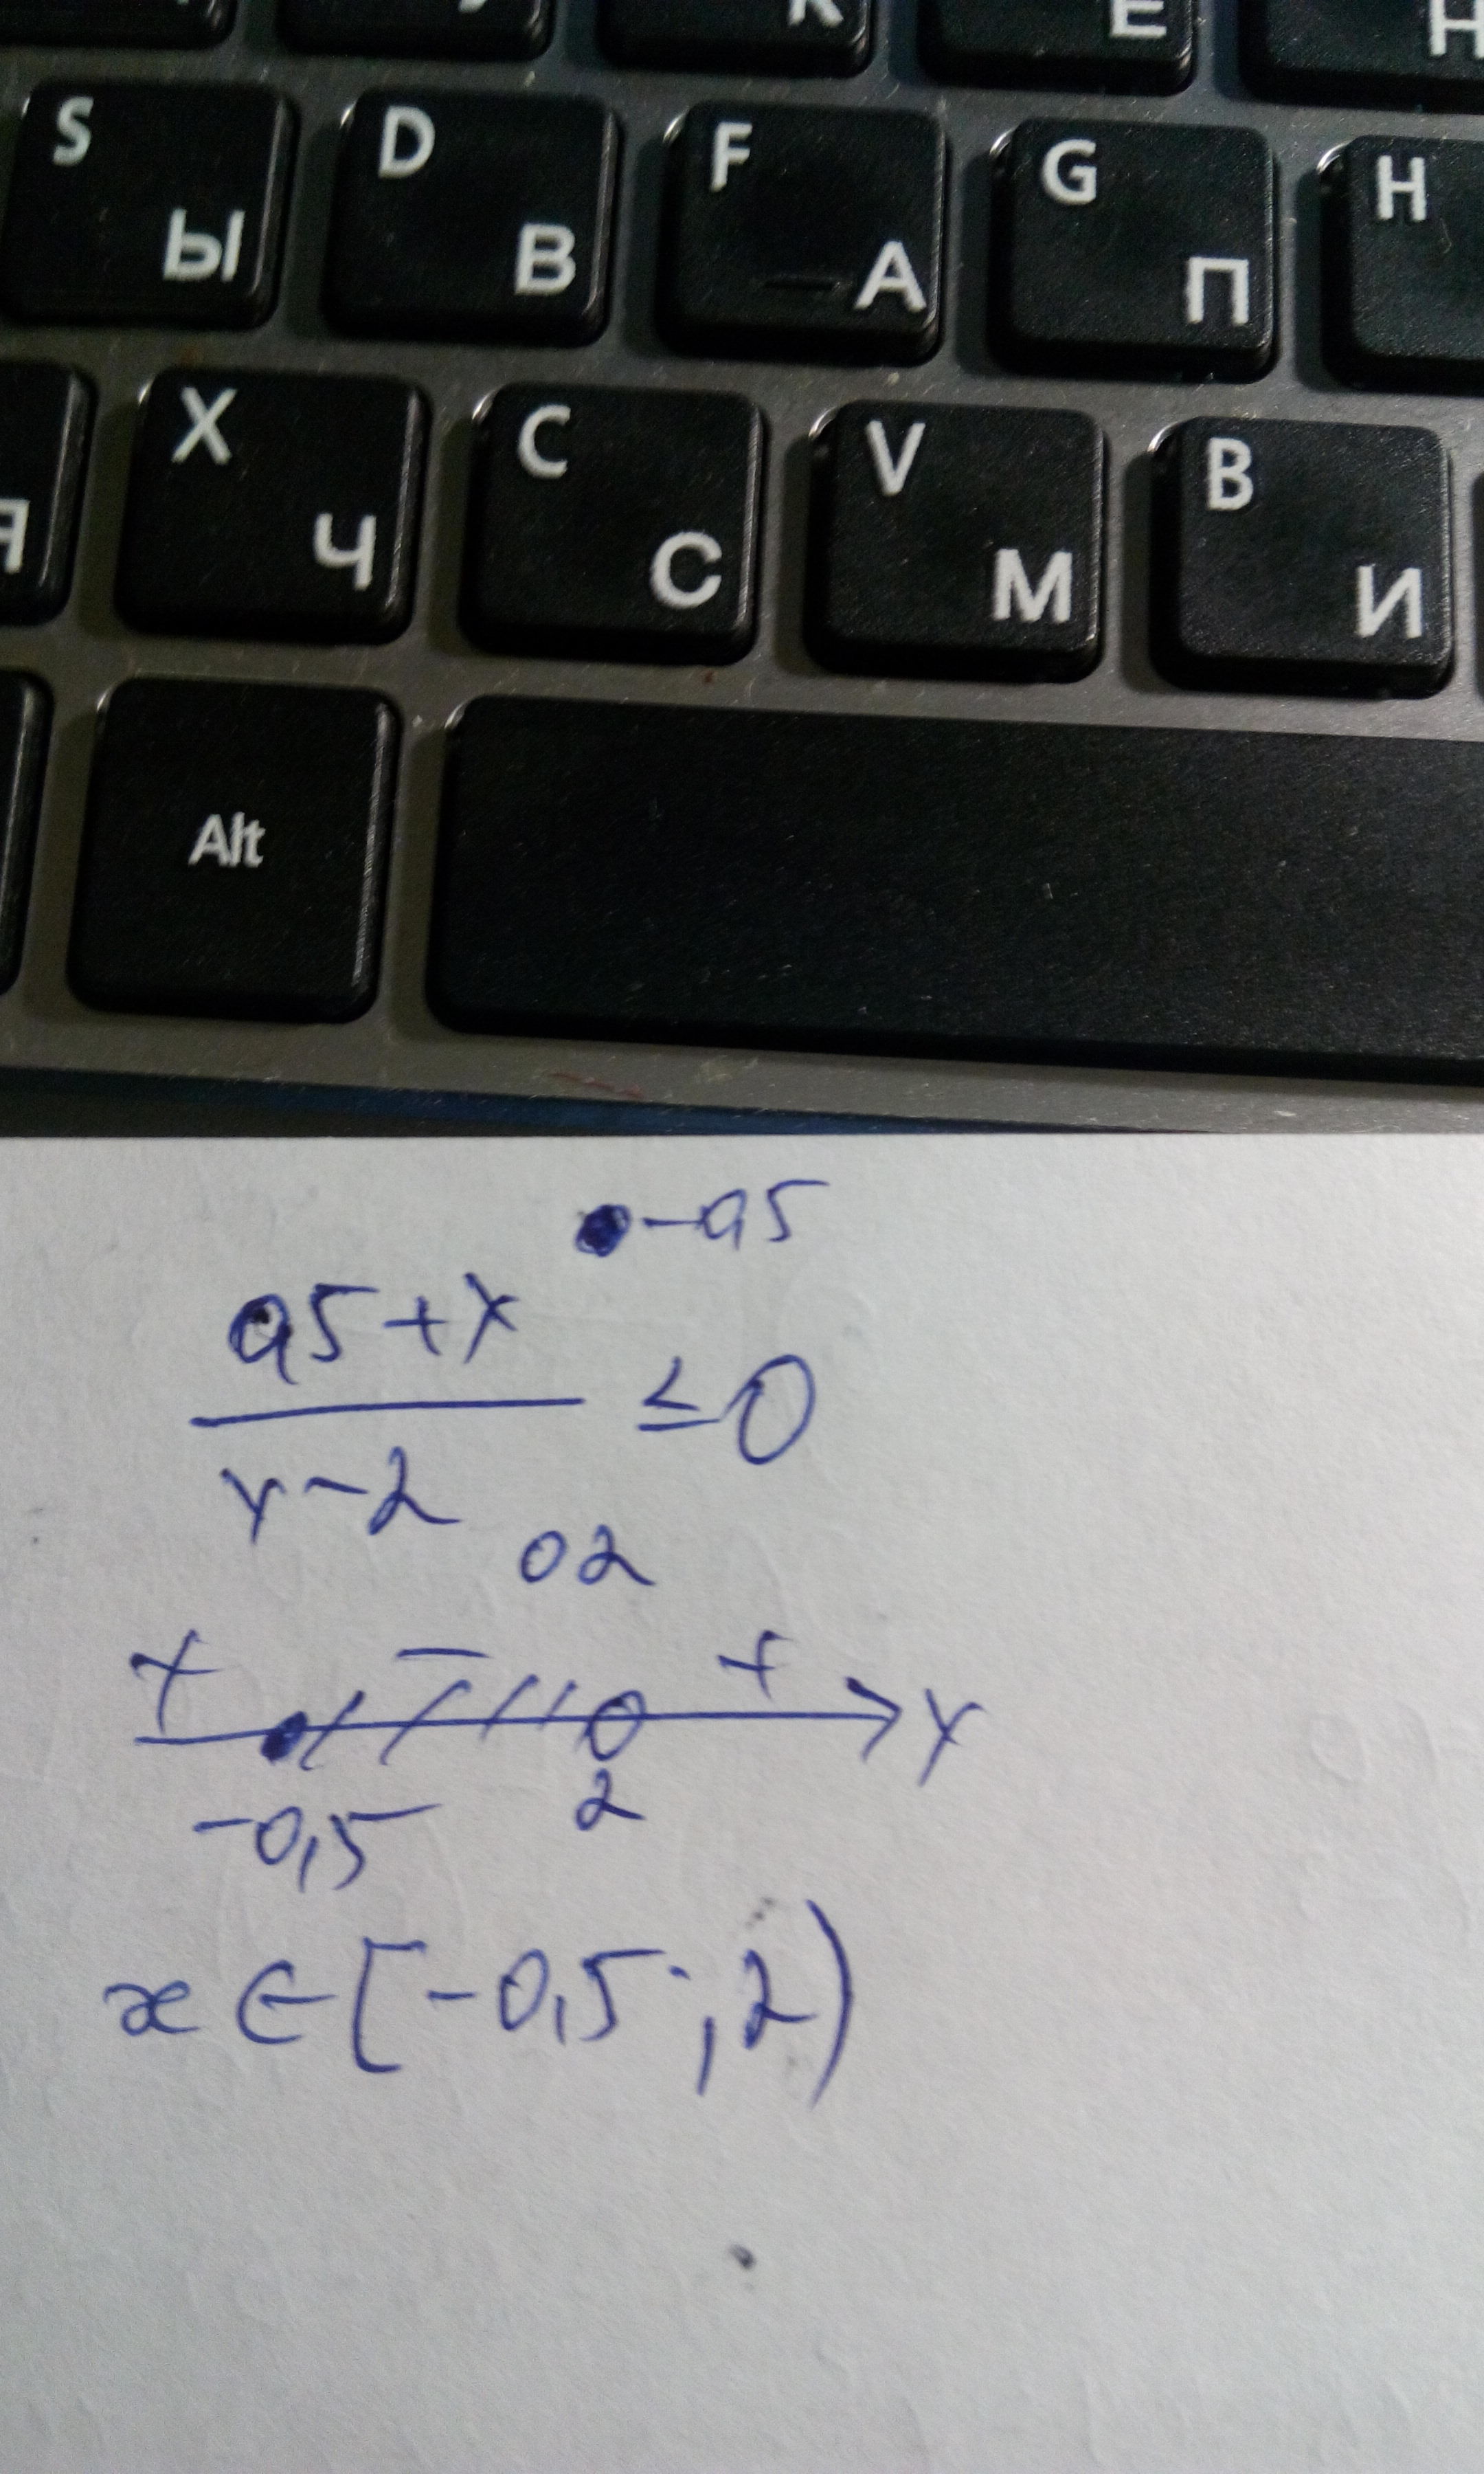 К Е Н
S Ы D В F А G П H
Я X Ч C С V М B И
Alt
-0,5
0,5+x
≤0
x-2
2
+ - + x
-0,5 2
x∈[-0,5;2)